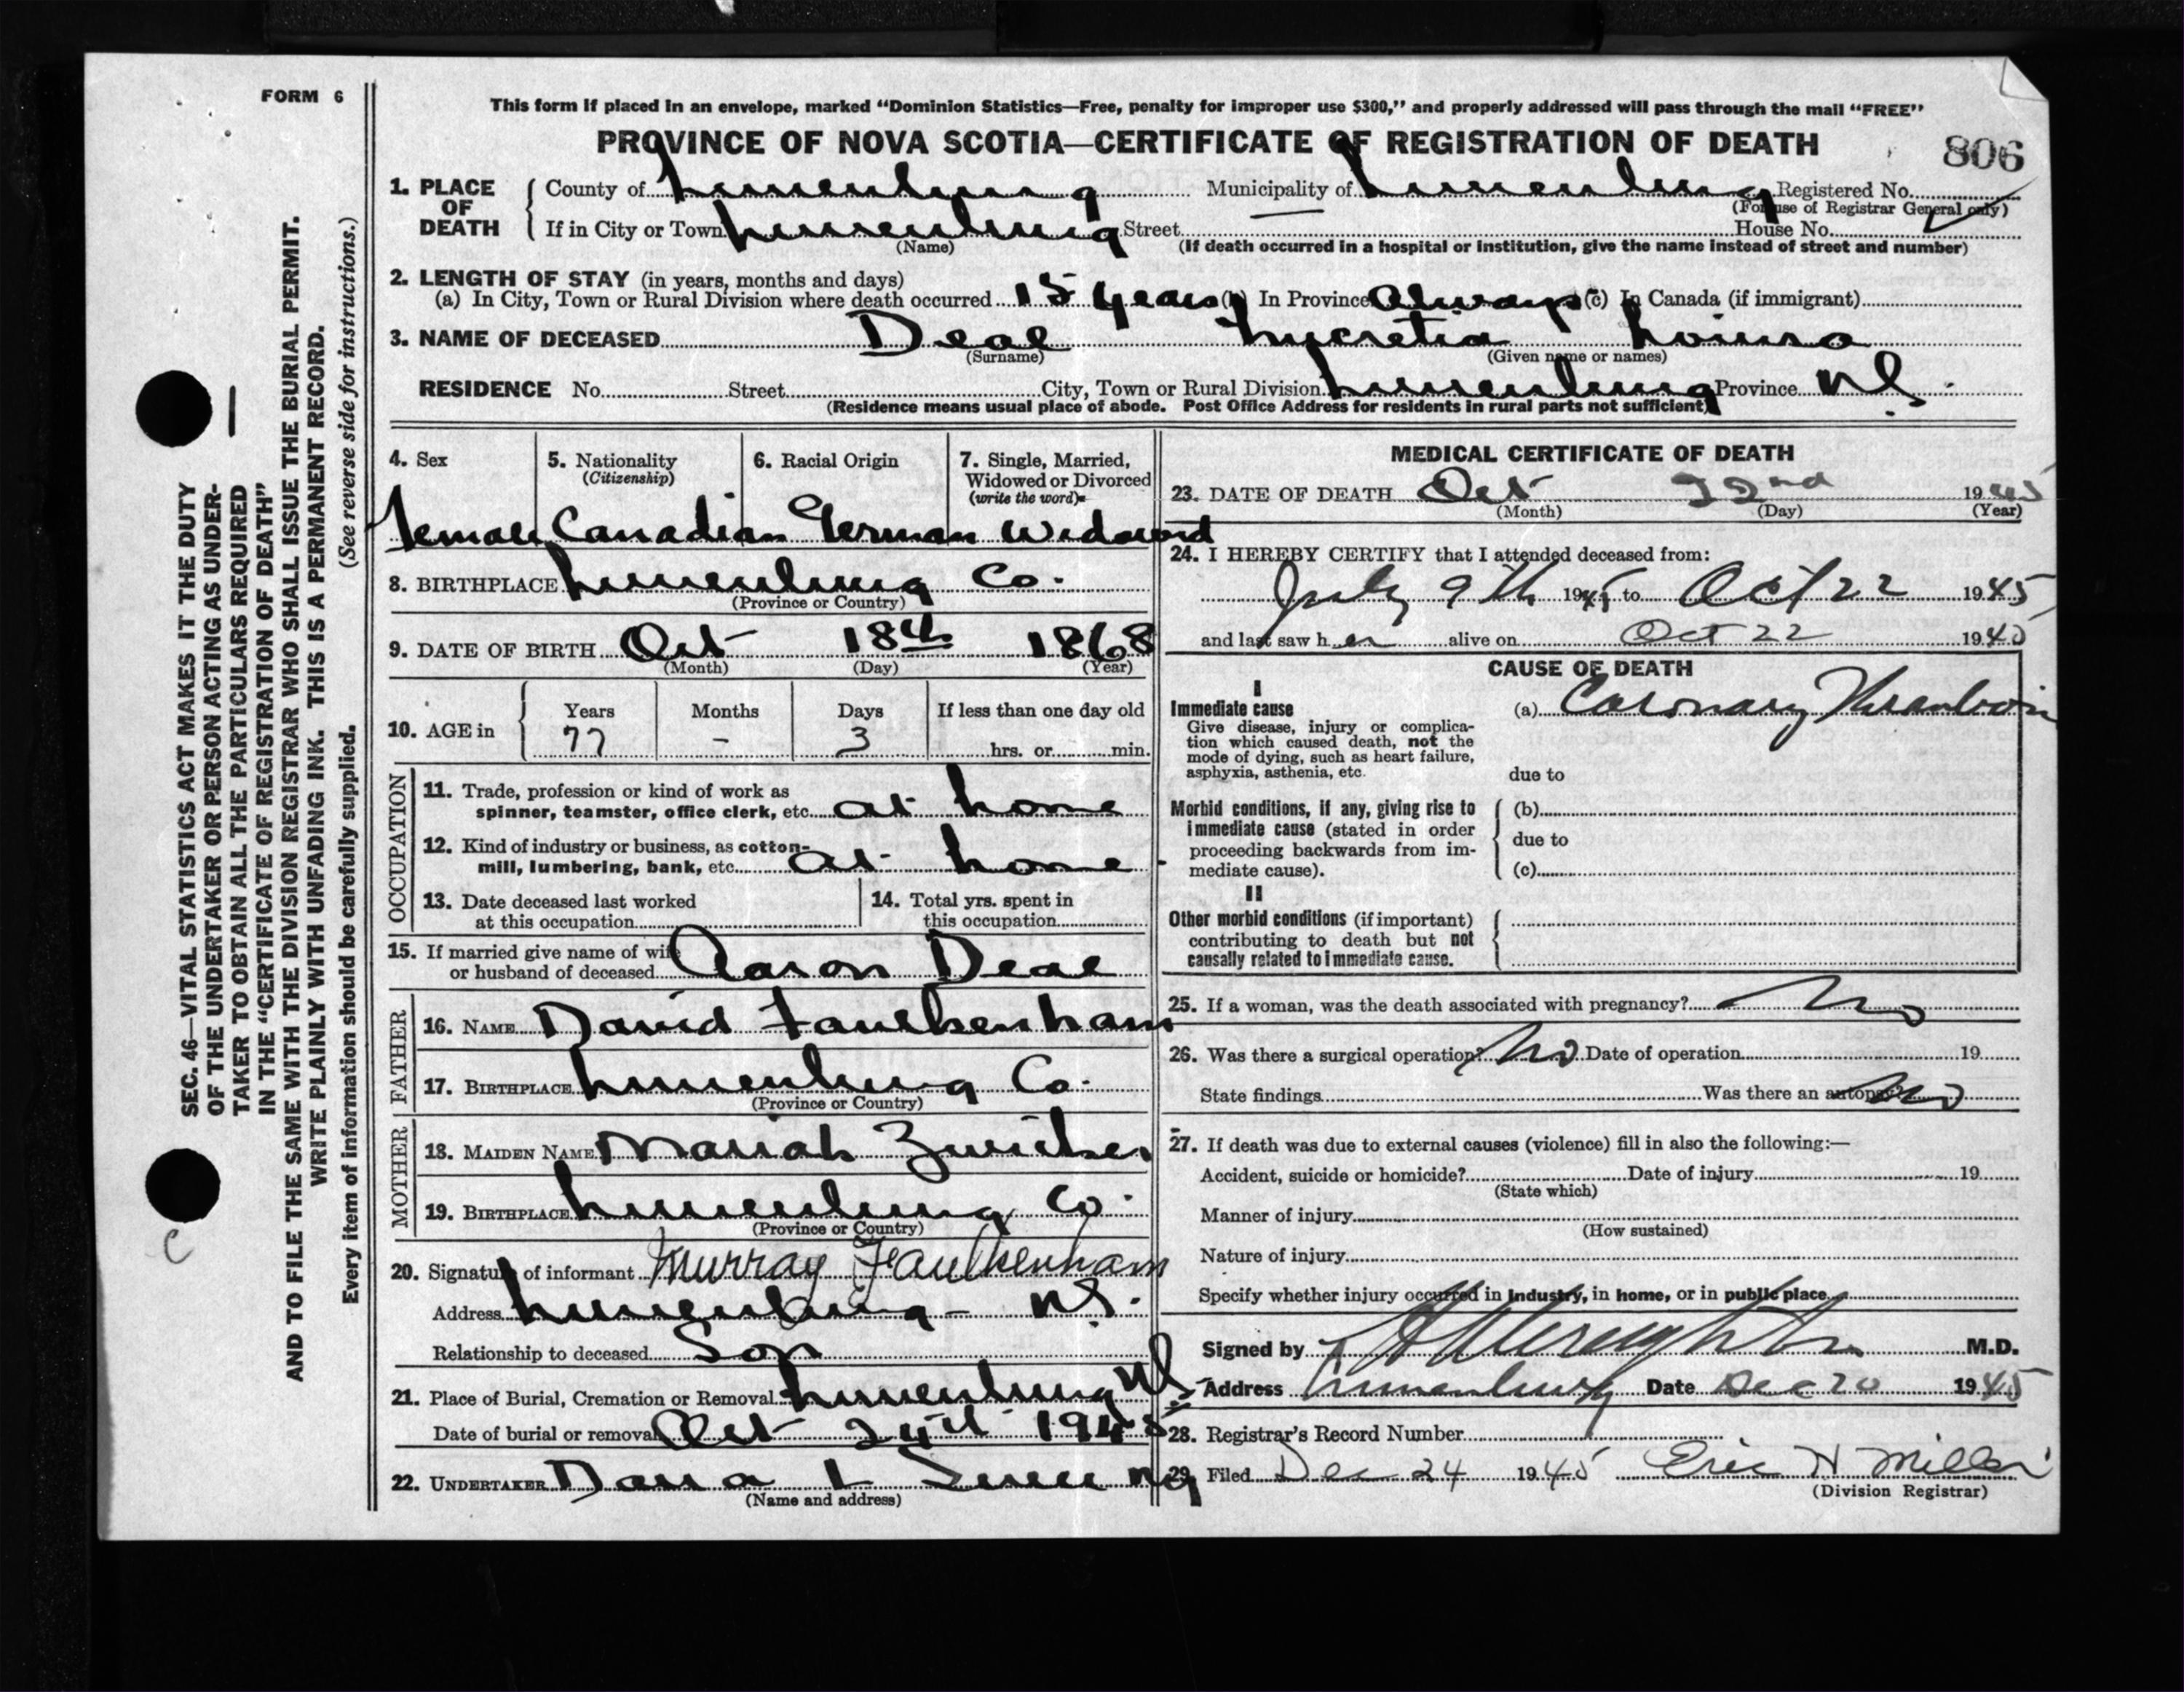 FORM 6
This form if placed in an envelope, marked “Dominion Statistics—Free, penalty for improper use $300,” and properly addressed will pass through the mail “FREE”
PROVINCE OF NOVA SCOTIA—CERTIFICATE OF REGISTRATION OF DEATH
806
1. PLACE OF DEATH
County of Lunenburg Municipality of Lunenburg Registered No.
(For use of Registrar General only)
If in City or Town Lunenburg Street House No.
(Name) (If death occurred in a hospital or institution, give the name instead of street and number)
2. LENGTH OF STAY (in years, months and days)
(a) In City, Town or Rural Division where death occurred 15 years (b) In Province Always (c) In Canada (if immigrant)
3. NAME OF DECEASED Deal Lucretia Louisa
(Surname) (Given name or names)
RESIDENCE No. Street City, Town or Rural Division Lunenburg Province N.S.
(Residence means usual place of abode. Post Office Address for residents in rural parts not sufficient)
4. Sex 5. Nationality (Citizenship) 6. Racial Origin 7. Single, Married, Widowed or Divorced (write the word)
Female Canadian German Widowed
8. BIRTHPLACE Lunenburg Co.
(Province or Country)
9. DATE OF BIRTH Oct 18th 1868
(Month) (Day) (Year)
10. AGE in Years Months Days If less than one day old
77 - 3 hrs. or min.
OCCUPATION
11. Trade, profession or kind of work as
spinner, teamster, office clerk, etc. at home
12. Kind of industry or business, as cotton-
mill, lumbering, bank, etc. at home
13. Date deceased last worked
at this occupation
14. Total yrs. spent in
this occupation
15. If married give name of wife
or husband of deceased Aaron Deal
FATHER
16. NAME David Faulkenham
17. BIRTHPLACE Lunenburg Co.
(Province or Country)
MOTHER
18. MAIDEN NAME Mariah Zwicker
19. BIRTHPLACE Lunenburg Co.
(Province or Country)
20. Signature of informant Murray Faulkenham
Address Lunenburg - N.S.
Relationship to deceased Son
21. Place of Burial, Cremation or Removal Lunenburg N.S.
Date of burial or removal Oct 24th 1945
22. UNDERTAKER
(Name and address)
MEDICAL CERTIFICATE OF DEATH
23. DATE OF DEATH Oct 22nd 1945
(Month) (Day) (Year)
24. I HEREBY CERTIFY that I attended deceased from:
July 9th 1945 to Oct 22 1945
and last saw her alive on Oct 22 1945
CAUSE OF DEATH
I
Immediate cause (a) Coronary Thrombosis
Give disease, injury or complica-
tion which caused death, not the
mode of dying, such as heart failure,
asphyxia, asthenia, etc.
due to
Morbid conditions, if any, giving rise to
immediate cause (stated in order
proceeding backwards from im-
mediate cause).
(b)
due to
(c)
II
Other morbid conditions (if important)
contributing to death but not
causally related to immediate cause.
25. If a woman, was the death associated with pregnancy? No
26. Was there a surgical operation? No Date of operation 19
State findings Was there an autopsy? No
27. If death was due to external causes (violence) fill in also the following:—
Accident, suicide or homicide? Date of injury 19
(State which)
Manner of injury
(How sustained)
Nature of injury
Specify whether injury occurred in industry, in home, or in public place
Signed by M.D.
Address Lunenburg Date Dec 20 1945
28. Registrar's Record Number
29. Filed Dec 24 1945 Eric H Miller
(Division Registrar)
SEC. 46—VITAL STATISTICS ACT MAKES IT THE DUTY
OF THE UNDERTAKER OR PERSON ACTING AS UNDER-
TAKER TO OBTAIN ALL THE PARTICULARS REQUIRED
IN THE “CERTIFICATE OF REGISTRATION OF DEATH”
AND TO FILE THE SAME WITH THE DIVISION REGISTRAR WHO SHALL ISSUE THE BURIAL PERMIT.
WRITE PLAINLY WITH UNFADING INK. THIS IS A PERMANENT RECORD.
Every item of information should be carefully supplied. (See reverse side for instructions.)
C